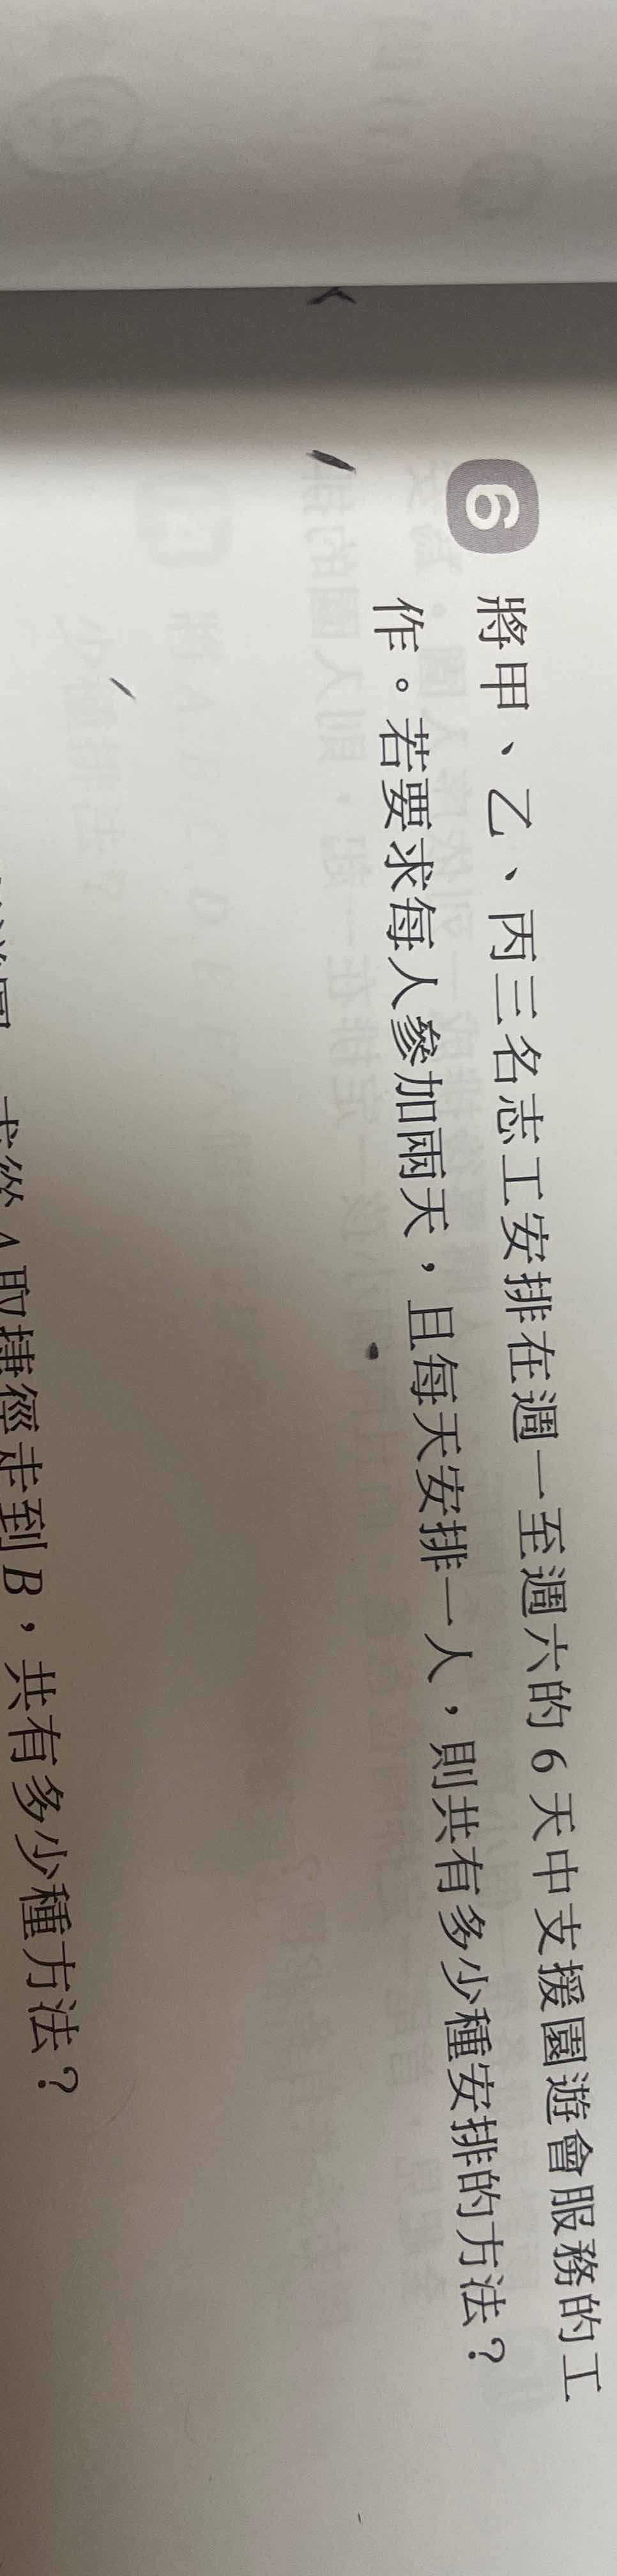 6 將甲、乙、丙三名志工安排在週一至週六的6天中支援園遊會服務的工
作。若要求每人參加兩天，且每天安排一人，則共有多少種安排的方法？
求從A取捷徑走到B，共有多少種方法？